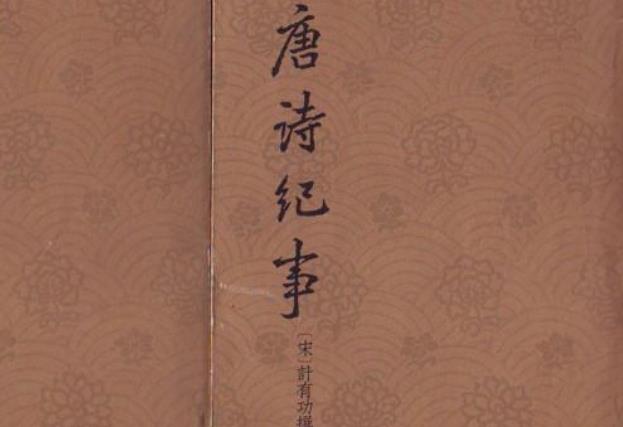 唐诗纪事
〔宋〕計有功撰